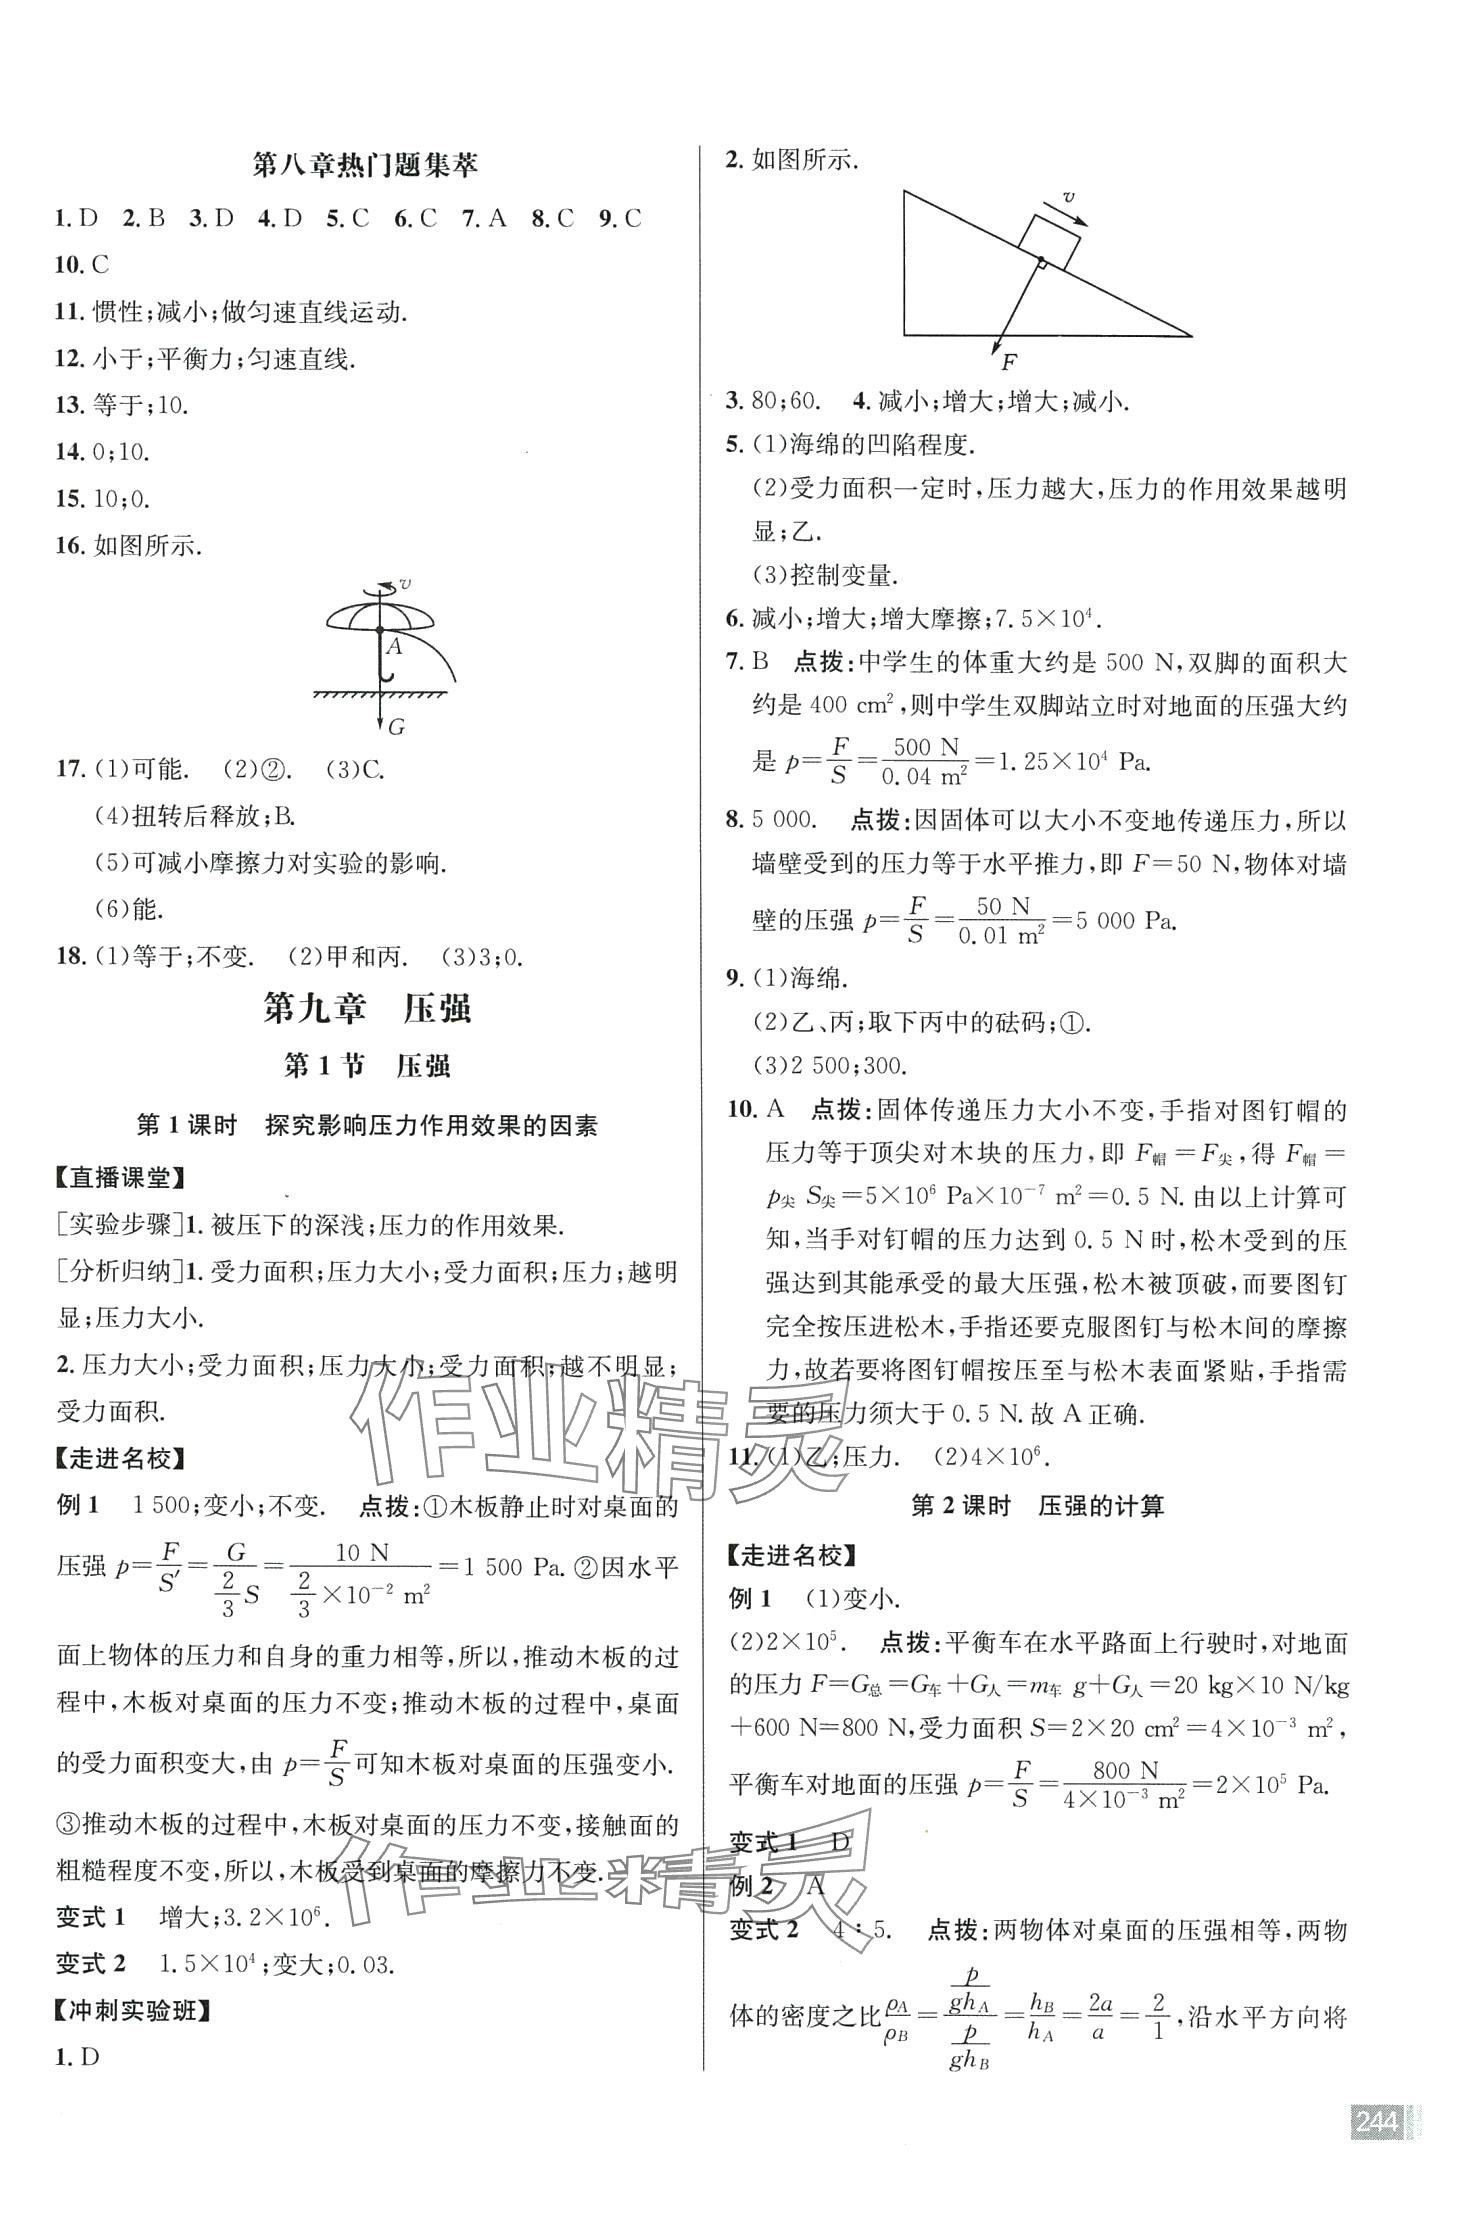 第八章热门题集萃
1. D 2. B 3. D 4. D 5. C 6. C 7. A 8. C 9. C
10. C
11. 惯性;减小;做匀速直线运动.
12. 小于;平衡力;匀速直线.
13. 等于;10.
14. 0;10.
15. 10;0.
16. 如图所示.
v
A
G
17. (1)可能. (2)②. (3)C.
(4)扭转后释放;B.
(5)可减小摩擦力对实验的影响.
(6)能.
18. (1)等于;不变. (2)甲和丙. (3)3;0.
第九章 压强
第 1 节 压强
第 1 课时 探究影响压力作用效果的因素
【直播课堂】
[实验步骤]1. 被压下的深浅;压力的作用效果.
[分析归纳]1. 受力面积;压力大小;受力面积;压力;越明
显;压力大小.
2. 压力大小;受力面积;压力大小;受力面积;越不明显;
受力面积.
【走进名校】
例 1 1 500;变小;不变. 点拨:①木板静止时对桌面的
压强 p=F/S′=G/(2/3 S)=10 N/(2/3×10⁻² m²)=1 500 Pa. ②因水平
面上物体的压力和自身的重力相等,所以,推动木板的过
程中,木板对桌面的压力不变;推动木板的过程中,桌面
的受力面积变大,由 p=F/S可知木板对桌面的压强变小.
③推动木板的过程中,木板对桌面的压力不变,接触面的
粗糙程度不变,所以,木板受到桌面的摩擦力不变.
变式 1 增大;3.2×10⁶.
变式 2 1.5×10⁴;变大;0.03.
【冲刺实验班】
1. D
2. 如图所示.
v
F
3. 80;60. 4. 减小;增大;增大;减小.
5. (1)海绵的凹陷程度.
(2)受力面积一定时,压力越大,压力的作用效果越明
显;乙.
(3)控制变量.
6. 减小;增大;增大摩擦;7.5×10⁴.
7. B 点拨:中学生的体重大约是 500 N,双脚的面积大
约是 400 cm²,则中学生双脚站立时对地面的压强大约
是 p=F/S=500 N/0.04 m²=1.25×10⁴ Pa.
8. 5 000. 点拨:因固体可以大小不变地传递压力,所以
墙壁受到的压力等于水平推力,即 F=50 N,物体对墙
壁的压强 p=F/S=50 N/0.01 m²=5 000 Pa.
9. (1)海绵.
(2)乙、丙;取下丙中的砝码;①.
(3)2 500;300.
10. A 点拨:固体传递压力大小不变,手指对图钉帽的
压力等于顶尖对木块的压力,即 F帽=F尖,得 F帽=
p尖 S尖=5×10⁶ Pa×10⁻⁷ m²=0.5 N. 由以上计算可
知,当手对钉帽的压力达到 0.5 N时,松木受到的压
强达到其能承受的最大压强,松木被顶破,而要图钉
完全按压进松木,手指还要克服图钉与松木间的摩擦
力,故若要将图钉帽按压至与松木表面紧贴,手指需
要的压力须大于 0.5 N. 故 A 正确.
11. (1)乙;压力. (2)4×10⁶.
第 2 课时 压强的计算
【走进名校】
例 1 (1)变小.
(2)2×10⁵. 点拨:平衡车在水平路面上行驶时,对地面
的压力 F=G总=G车+G人=m车 g+G人=20 kg×10 N/kg
+600 N=800 N,受力面积 S=2×20 cm²=4×10⁻³ m²,
平衡车对地面的压强 p=F/S=800 N/(4×10⁻³ m²)=2×10⁵ Pa.
变式 1 D
例 2 A
变式 2 4∶5. 点拨:两物体对桌面的压强相等,两物
体的密度之比ρA/ρB=(p/ghA)/(p/ghB)=hB/hA=2a/a=2/1,沿水平方向将
244
作业精灵
作业精灵